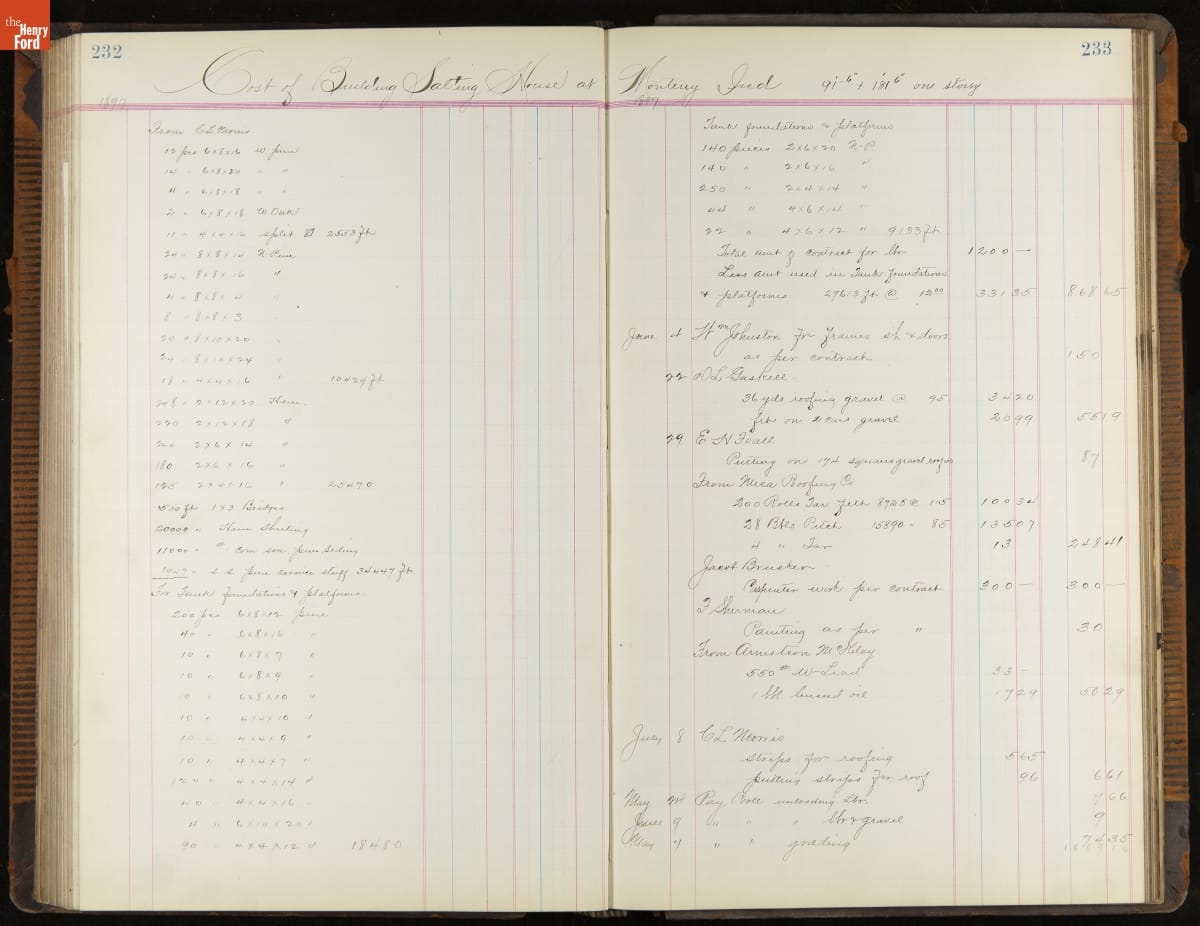 the Henry Ford
232
Cost of Building Salting House at
1897
From C L Morris
12 pcs 6x8x16 W pine
14 " 6x8x20 " "
4 " 6x8x18 " "
2 " 6x8x18 W Oak
11 " 4x4x16 split 2553 ft
24 " 8x8x14 N. Pine
24 " 8x8x16 "
4 " 8x8x4 "
8 " 8x8x3
20 " 8x10x20 "
24 " 8x10x24 "
18 " 4x4x16 " 10429 ft
248 " 2x12x20 Hem.
220 2x12x18 "
244 2x6x14 "
180 2x6x16 "
125 2x4x16 " 25470
500 ft 1x3 Bridges
20000 " Hem Sheeting
11000 " com pine siding
1947 " s s pine cornice stuff 34447 ft
For Tank foundations & platforms
200 pcs 6x8x12 pine
40 " 6x8x16 "
10 " 6x8x7 "
10 " 6x8x9 "
10 " 6x8x10 "
10 " 4x4x10 "
10 " 4x4x9 "
10 " 4x4x7 "
120 " 4x4x14 "
40 " 4x4x16 "
4 " 6x10x20 "
90 " 4x4x12 " 18480
233
Monterey Ind 91'-6" x 181'6" one story
1897
Tank foundations & platforms
140 pieces 2x6x20 N.P.
140 " 2x6x16 "
250 " 2x4x14 "
44 " 4x6x14 "
22 " 4x6x12 " 9133 ft
Total amt of contract for lbr 1200 —
Less amt used in Tank foundations
& platforms 27613 ft @ 12 00 331 35 868 65
June 4 Wm Johnston for frames sh & doors
as per contract 150
22 D L Gaskell
36 yds roofing gravel @ 95 34 20
frt on 2 cars gravel 20 99 55 19
29 E N
Putting on 174 squares gravel roofing 87
From Mica Roofing Co
200 Rolls Tar felt 8725 @ 115 100 34
28 Bbls Pitch 15890 " 85 135 07
4 " Tar 13 248 41
Jacob Brucker
Carpenter work per contract 300 — 300 —
F Sherman
Painting as per " 30
From Armstrong McKelvy
550 # W Lead 33 —
1 bbl linseed oil 17 29 50 29
July 8 C L Morris
strips for roofing 5 65
putting strips for roof 96 6 61
May 24 Pay Roll unloading Lbr. 7 66
June 9 " " " lbr & gravel 9
May 7 " " grading 74 35